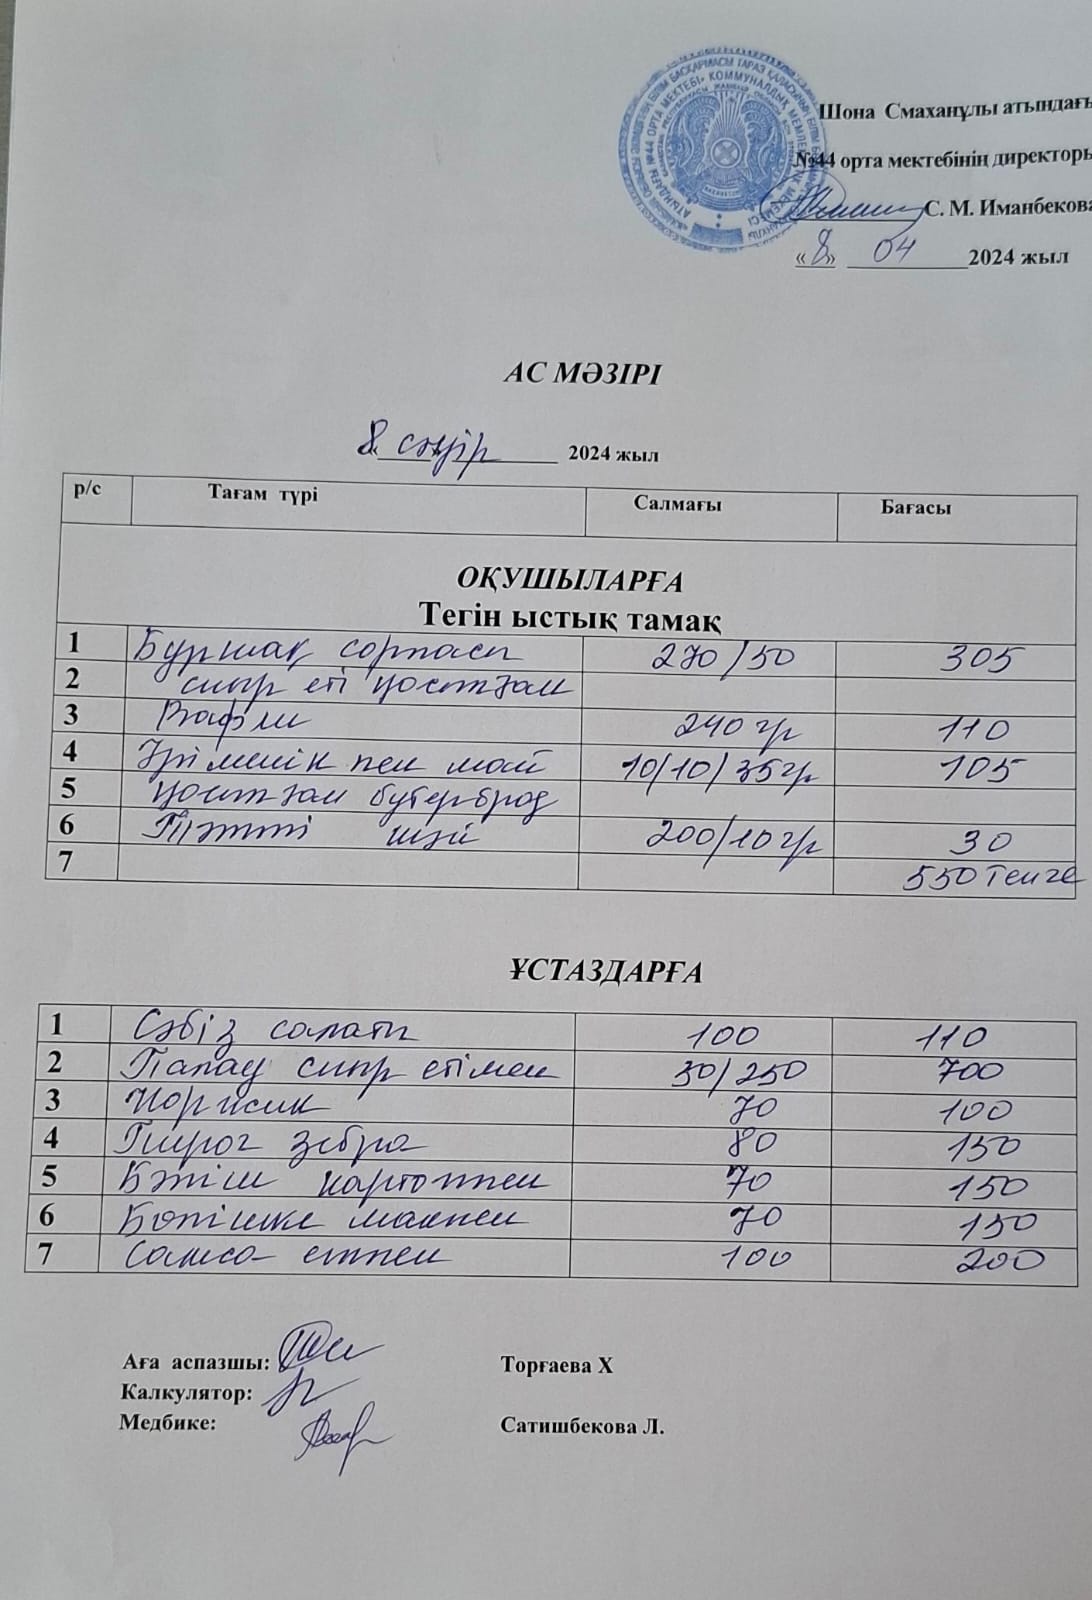 Шона Смаханұлы атындағы
№44 орта мектебінің директоры
С. М. Иманбекова
«8» 04 2024 жыл
АС МӘЗІРІ
8 сәуір 2024 жыл
р/с Тағам түрі Салмағы Бағасы
ОҚУШЫЛАРҒА
Тегін ыстық тамақ
1 Бұршақ сорпасы 270/50 305
2 сиыр еті қостған
3 Вафли 240 гр 110
4 Ірімшік пен май 10/10/35гр 105
5 қостған бутерброд
6 Тәтті шәй 200/10 гр 30
7 550 тенге
ҰСТАЗДАРҒА
1 Сәбіз салаты 100 110
2 Палау сиыр етімен 30/250 700
3 Коржик 70 100
4 Пирог зебра 80 150
5 Бәтіш картоппен 70 150
6 Бөпішке макпен 70 150
7 Самса етпен 100 200
Аға аспазшы: Торғаева Х
Калкулятор:
Медбике: Сатишбекова Л.